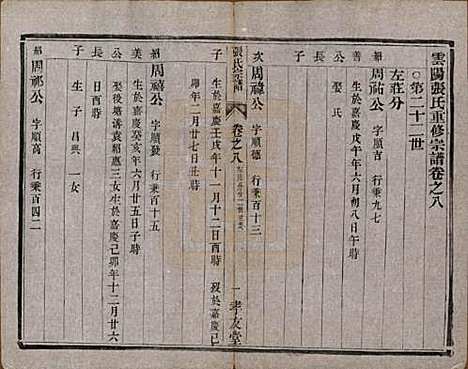 雲陽張氏重修宗譜卷之八
○第二十二世
左莊分
善 周祐公 字順吉 行乘九七
公 生於嘉慶戊午年六月初八日午時
長 娶氏
次 周禕公 字順德 行乘百十三
子 生於嘉慶壬戌年十一月十二日酉時 歿於嘉慶己
卯年二月廿七日丑時
張氏宗譜
卷之八
一 孝友堂
紹 周禧公 字順發 行乘百十五
美 生於嘉慶癸亥年六月廿五日子時
公 娶後塘溝袁紹惠三女生於嘉慶己卯年十二月廿六
長 日酉時
子 生子 昌興 一女
紹 周祁公 字順高 行乘百四二